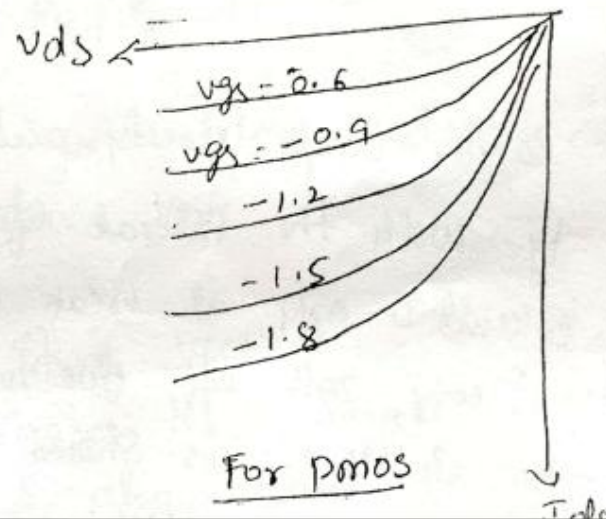 vds
vgs = -0.6
vgs = -0.9
-1.2
-1.5
-1.8
For pmos